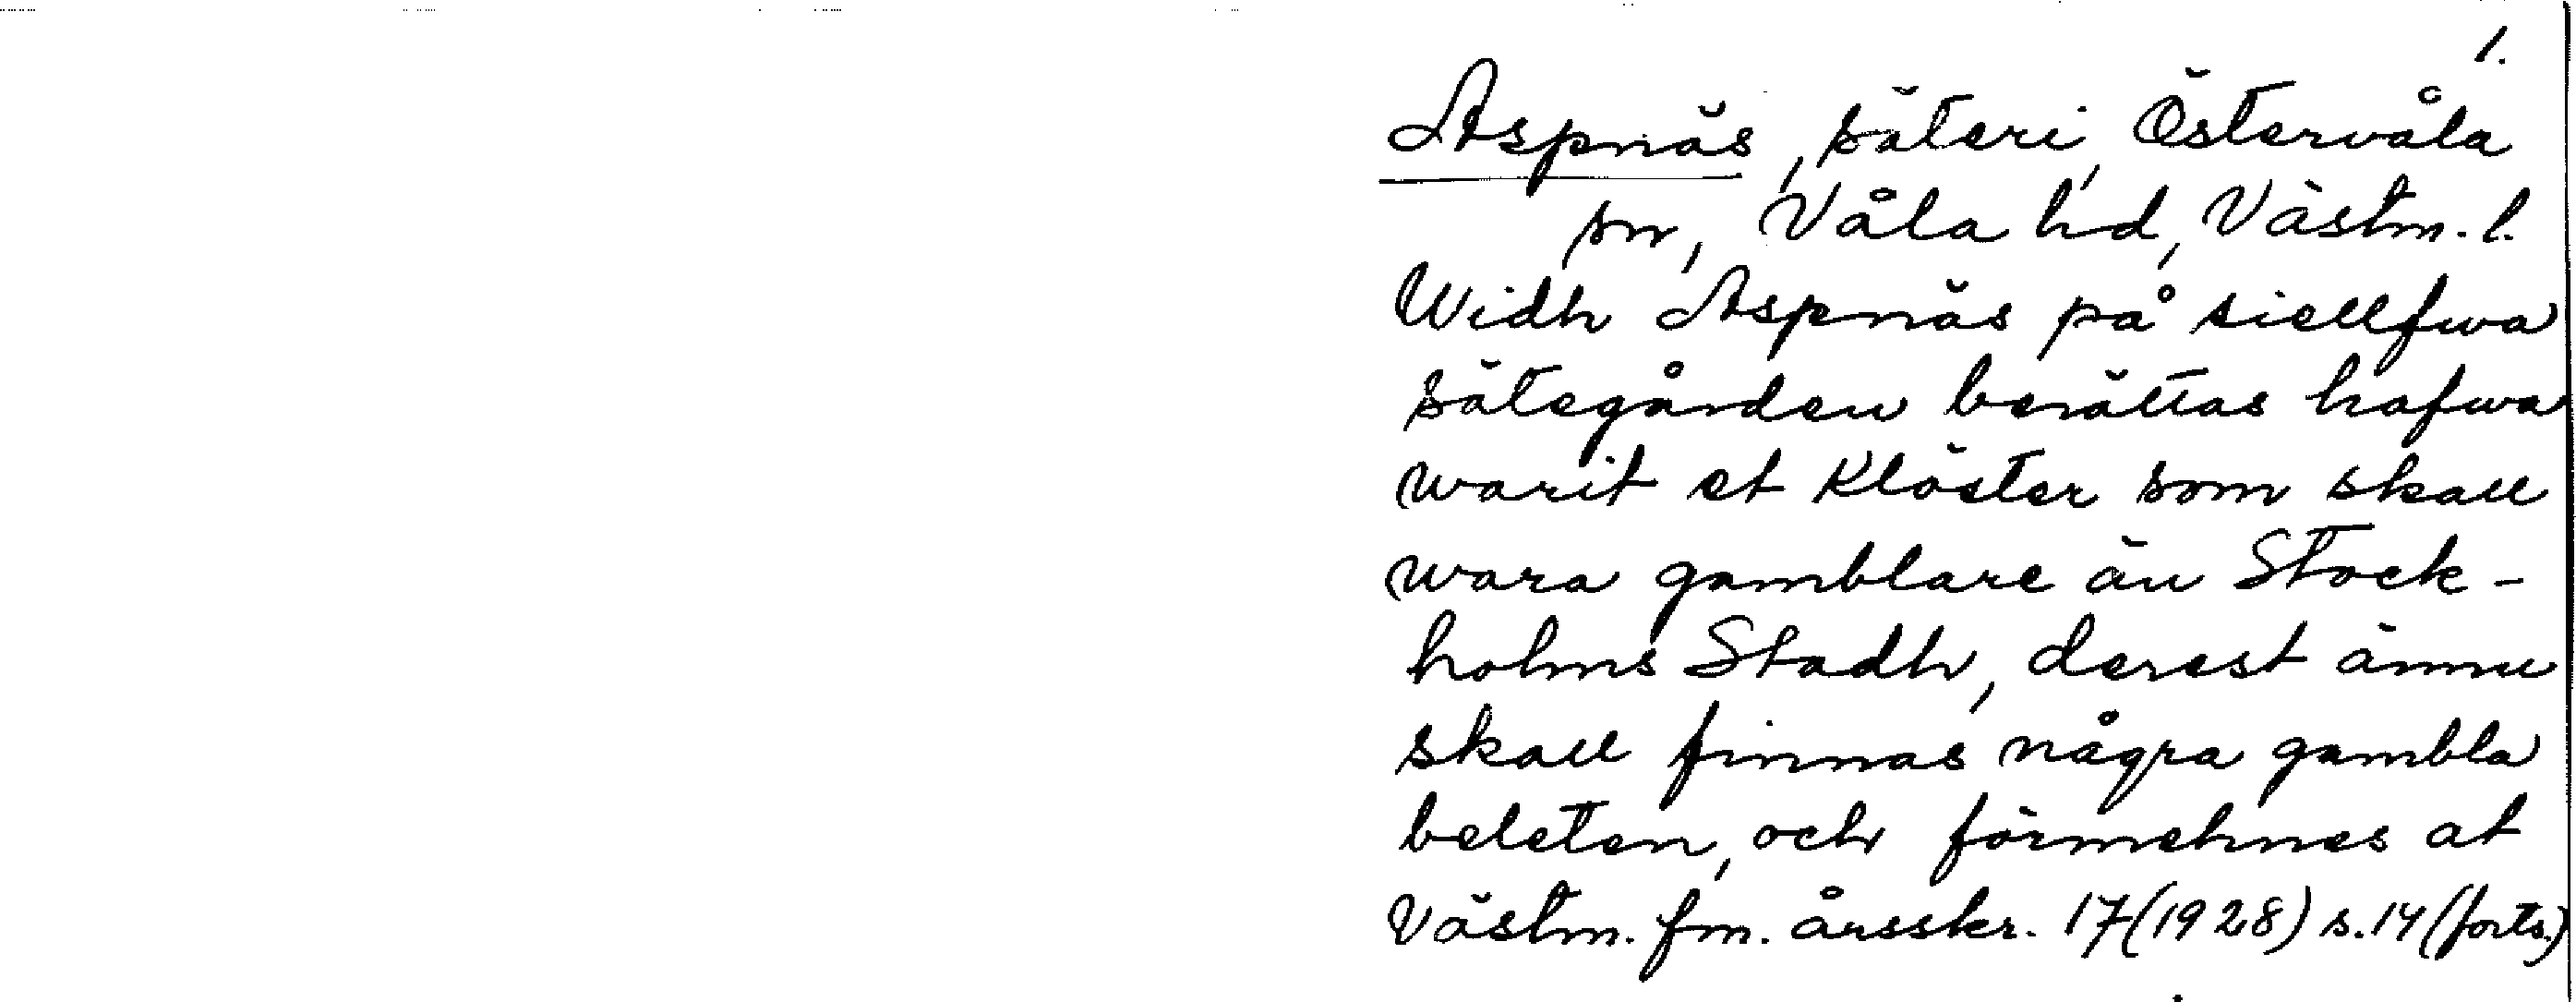 1.
Aspnäs, säteri, Östervåla
sn, Våla hd, Västm. l.
Widh Aspnäs på siellfwa
sätegården berättas hafwa
warit et Klöster som skall
wara gamblare än Stock-
holms Stadh, derest ännu
skall finnas några gambla
beleten, och förmehnes at
Västm. fm. årsskr. 17 (1928) s. 14 (forts.)